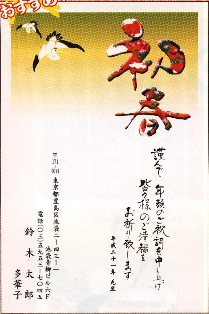 おすすめ
初春
謹んで年頭のご祝詞を申し上げ
皆々様のご清福を
お祈り致します
平成二十一年 元旦
東京都豊島区池袋二―四三―一
池袋青柳ビル六F
電話(〇三)五九五三―七〇四五
鈴木太郎
多華子